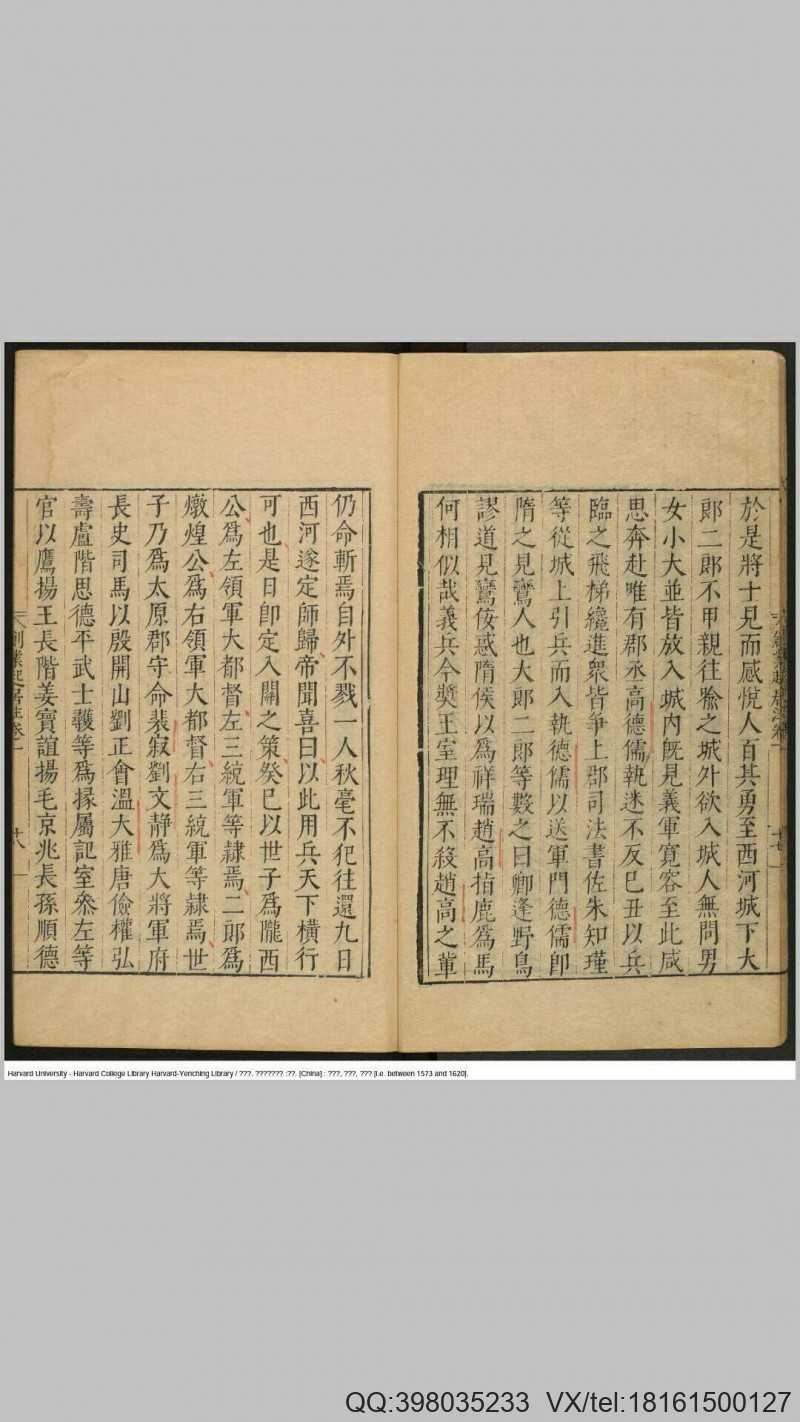 於是將士見而感悅人百其勇至西河城下大
郎二郎不甲親往喻之城外欲入城人無問男
女小大並皆放入城內既見義軍寬容至此咸
思奔赴唯有郡丞高德儒執迷不反己丑以兵
臨之飛梯纔進衆皆爭上郡司法書佐朱知瑾
等從城上引兵而入執德儒以送軍門德儒卽
隋之見鸞人也大郎二郎等數之曰卿逢野鳥
謬道見鸞佞惑隋侯以爲祥瑞趙高指鹿爲馬
何相似哉義兵今奬王室理無不殺趙高之輩
仍命斬焉自外不戮一人秋毫不犯往還九日
西河遂定師歸帝聞喜曰以此用兵天下橫行
可也是日卽定入關之策癸巳以世子爲隴西
公爲左領軍大都督左三統軍等隸焉二郎爲
燉煌公爲右領軍大都督右三統軍等隸焉世
子乃爲太原郡守命裴寂劉文靜爲大將軍府
長史司馬以殷開山劉正會溫大雅唐儉權弘
壽盧階思德平武士彠等爲掾屬記室叅左等
官以鷹揚王長階姜寶誼揚毛京兆長孫順德
創業起居注卷一
廿八
Harvard University - Harvard College Library Harvard-Yenching Library / ???. ??????? :??. [China] : ???, ???, ??? [i.e. between 1573 and 1620].
QQ:398035233 VX/tel:18161500127